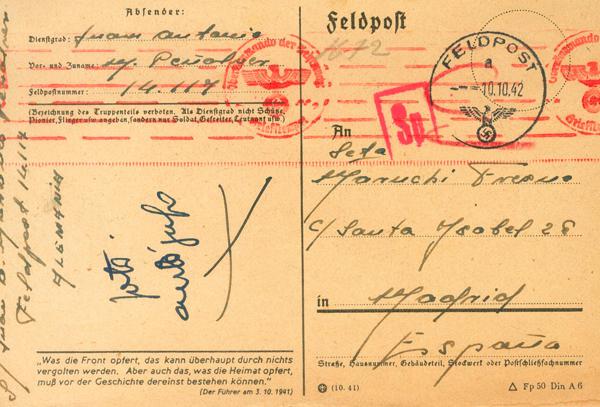 Absender:
Dienstgrad: Juan Antonio
Vor- und Zuname: y Peñalver
Feldpostnummer: 14.117
(Bezeichnung des Truppenteils verboten. Als Dienstgrad nicht Schütze,
Pionier, Flieger usw angeben, sondern nur Soldat, Gefreiter, Leutnant usw.)
Feldpost 14117
ALEMANIA
„Was die Front opfert, das kann überhaupt durch nichts
vergolten werden. Aber auch das, was die Heimat opfert,
muß vor der Geschichte dereinst bestehen können."
(Der Führer am 3. 10. 1941)
Feldpost
1672
FELDPOST
a
10.10.42
Sp
An
Srta
Maruchi Fresno
C/ Santa Isabel 28
in Madrid
España
Straße, Hausnummer, Gebäudeteil, Stockwerk oder Postschließfachnummer
(10. 41)
Fp 50 Din A 6